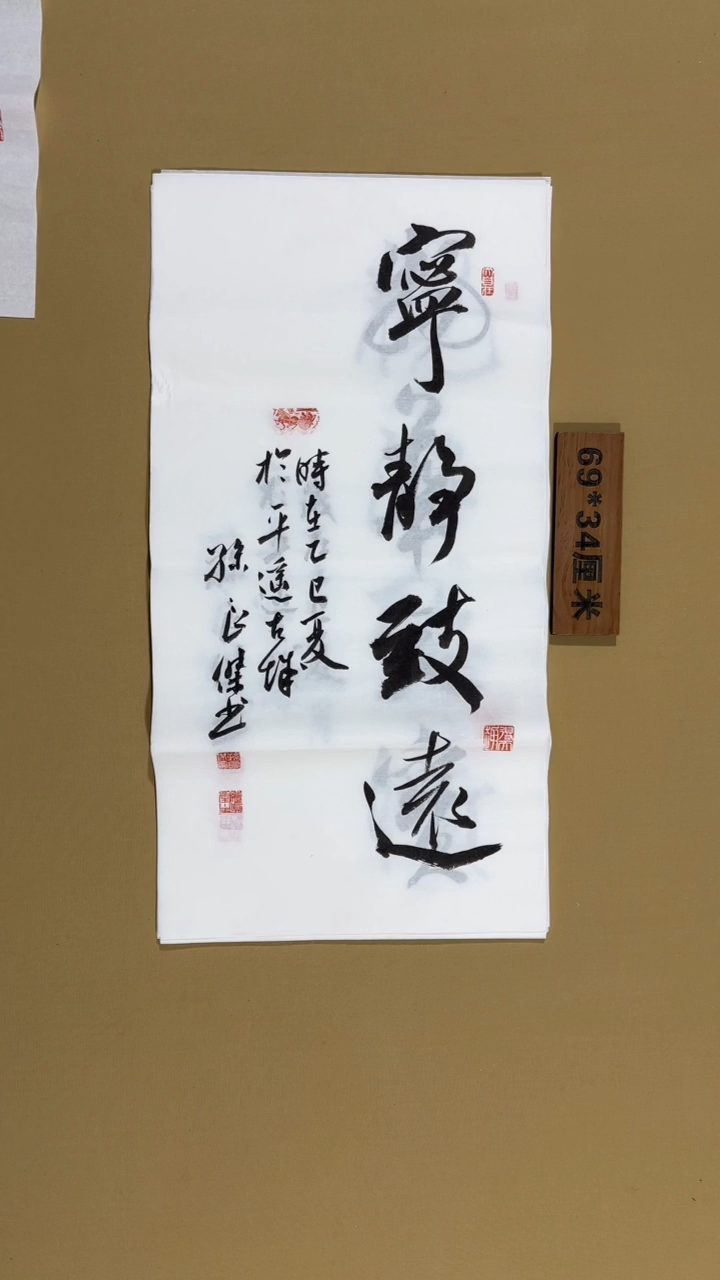 寧靜致遠
時在乙巳夏
於平遥古城
孫良傑书
69*34厘米